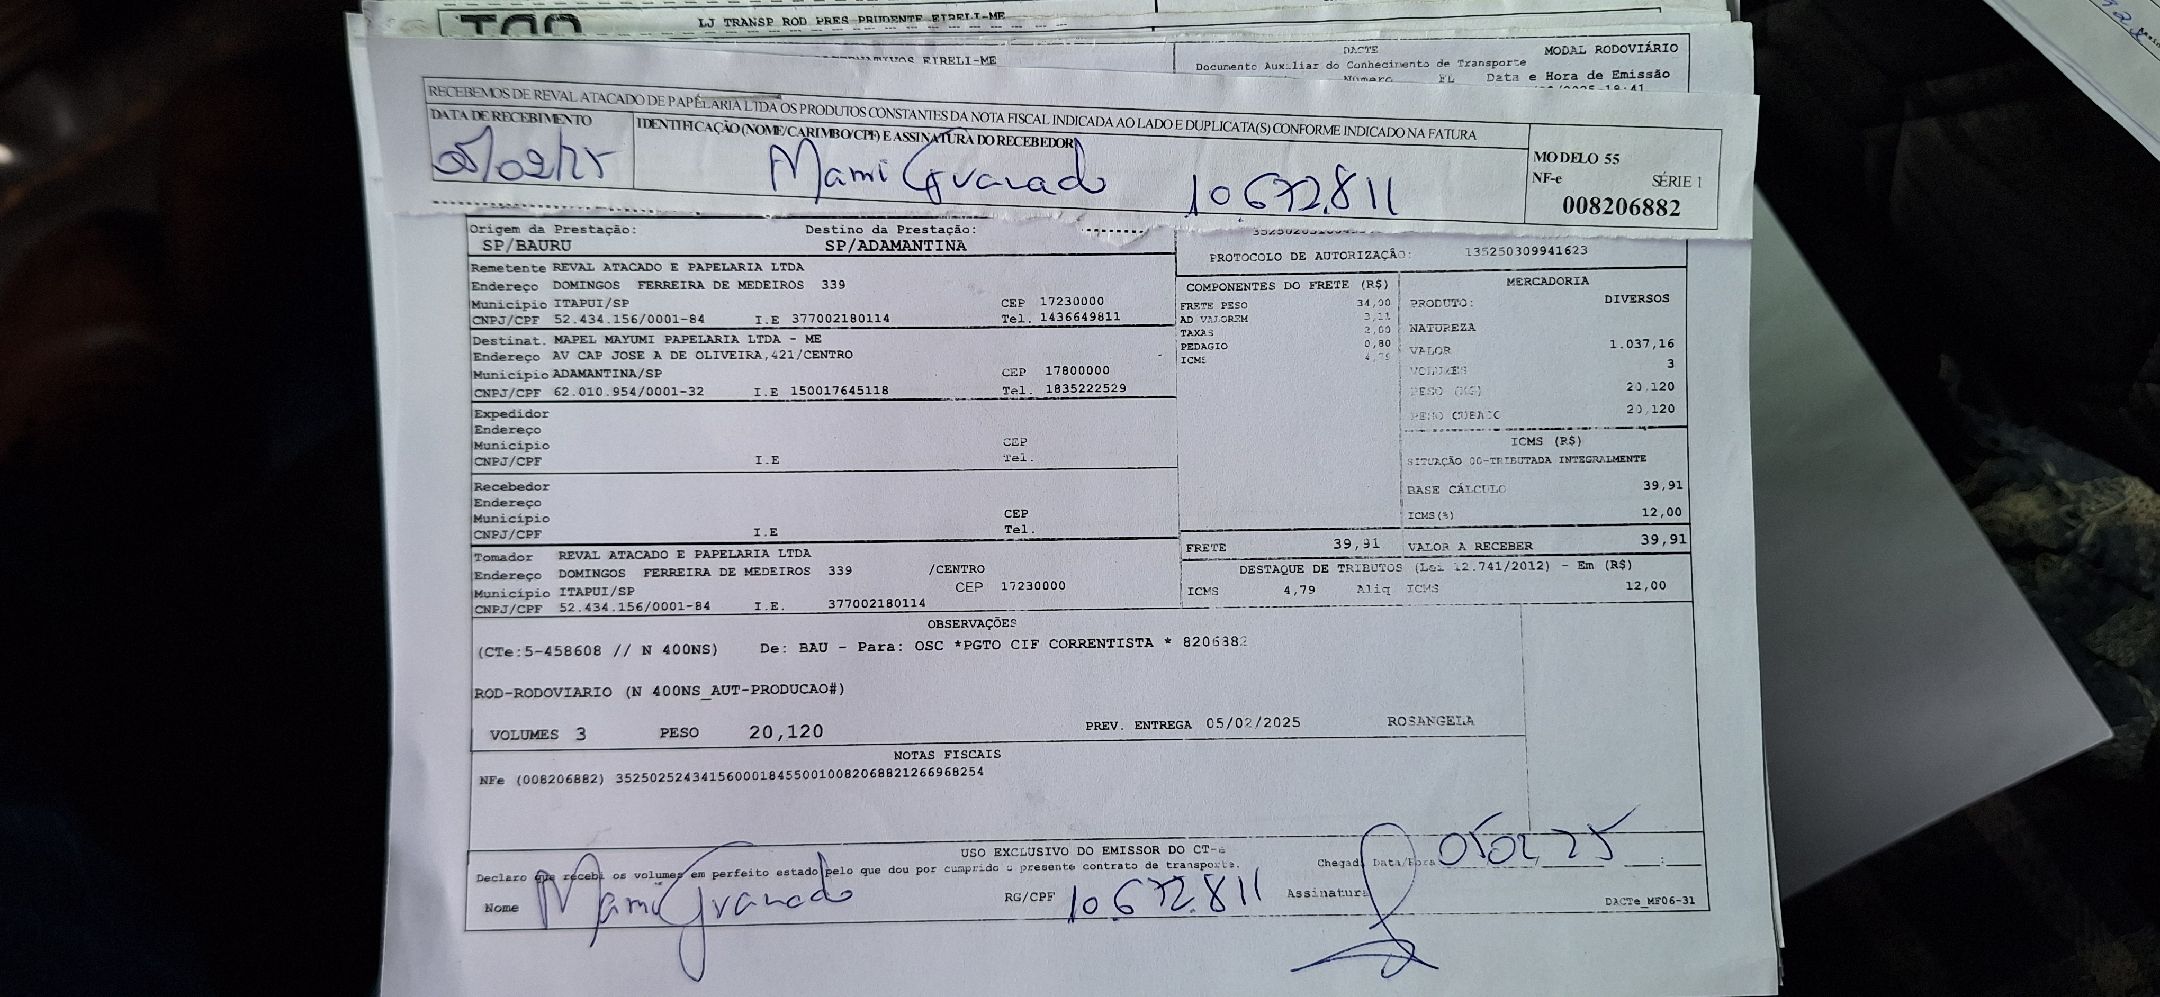 LJ TRANSP ROD PRES PRUDENTE EIRELI-ME
EIRELI-ME
DACTE
MODAL RODOVIÁRIO
Documento Auxiliar do Conhecimento de Transporte
Número FL Data e Hora de Emissão
RECEBEMOS DE REVAL ATACADO DE PAPELARIA LTDA OS PRODUTOS CONSTANTES DA NOTA FISCAL INDICADA AO LADO E DUPLICATA(S) CONFORME INDICADO NA FATURA
DATA DE RECEBIMENTO
IDENTIFICAÇÃO (NOME/CARIMBO/CPF) E ASSINATURA DO RECEBEDOR
05/02/25
Mami Granado 10.672.811
MODELO 55
NF-e SÉRIE 1
008206882
Origem da Prestação: Destino da Prestação:
SP/BAURU SP/ADAMANTINA
PROTOCOLO DE AUTORIZAÇÃO: 135250309941623
Remetente REVAL ATACADO E PAPELARIA LTDA
Endereço DOMINGOS FERREIRA DE MEDEIROS 339
Município ITAPUI/SP CEP 17230000
CNPJ/CPF 52.434.156/0001-84 I.E 377002180114 Tel. 1436649811
Destinat. MAPEL MAYUMI PAPELARIA LTDA - ME
Endereço AV CAP JOSE A DE OLIVEIRA,421/CENTRO
Município ADAMANTINA/SP CEP 17800000
CNPJ/CPF 62.010.954/0001-32 I.E 150017645118 Tel. 1835222529
Expedidor
Endereço
Município CEP
CNPJ/CPF I.E Tel.
Recebedor
Endereço
Município CEP
CNPJ/CPF I.E Tel.
Tomador REVAL ATACADO E PAPELARIA LTDA
Endereço DOMINGOS FERREIRA DE MEDEIROS 339 /CENTRO
Município ITAPUI/SP CEP 17230000
CNPJ/CPF 52.434.156/0001-84 I.E. 377002180114
COMPONENTES DO FRETE (R$)
FRETE PESO 34,00
AD VALOREM 3,11
TAXAS 2,00
PEDAGIO 0,80
ICMS 4,79
MERCADORIA
PRODUTO: DIVERSOS
NATUREZA
VALOR 1.037,16
VOLUMES 3
PESO (KG) 20,120
PESO CUBADO 20,120
ICMS (R$)
SITUAÇÃO 00-TRIBUTADA INTEGRALMENTE
BASE CÁLCULO 39,91
ICMS(%) 12,00
FRETE 39,91 VALOR A RECEBER 39,91
DESTAQUE DE TRIBUTOS (Lei 12.741/2012) - Em (R$)
ICMS 4,79 Aliq ICMS 12,00
OBSERVAÇÕES
(CTe:5-458608 // N 400NS) De: BAU - Para: OSC *PGTO CIF CORRENTISTA * 8206882
ROD-RODOVIARIO (N 400NS_AUT-PRODUCAO#)
VOLUMES 3 PESO 20,120 PREV. ENTREGA 05/02/2025 ROSANGELA
NOTAS FISCAIS
NFe (008206882) 35250252434156000184550010082068821266968254
USO EXCLUSIVO DO EMISSOR DO CT-e
Declaro que recebi os volumes em perfeito estado pelo que dou por cumprido o presente contrato de transporte.
Chegada Data/Hora 05 02 25 __:__
Nome Mami Granado RG/CPF 10.672.811 Assinatura
DACTe_MF06-31